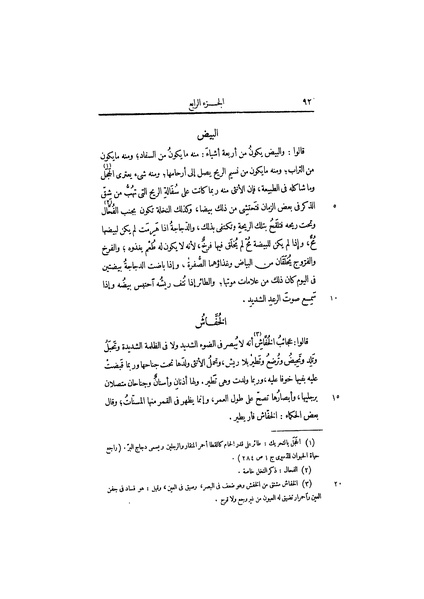 ٩٢ الجزء الرابع
البيض
قالوا : والبيض يكون من أربعة أشياء : منه ما يكون من السفاد؛ ومنه ما يكون
من التراب؛ ومنه ما يكون من نسيم الريح يصل إلى أرحامها؛ ومنه شىء يعترى الحَجَل (١)
وما شاكله فى الطبيعة، فإن الأنثى منه ربما كانت على سُفالة الريح التى تهُبُّ من شِقّ
الذكر فى بعض الزمان فتحتشى من ذلك بيضا، وكذلك النخلة تكون بجنب الفُحَّال ٥
وتحت ريحه فتَلقَح بتلك الريحة وتكتفى بذلك، والدجاجةُ اذا هَرِمت لم يكن لبيضها
مُحٌّ، وإذا لم يكن للبيضة مُحٌّ لم يُخلَق فيها فَرُّخٌ، لأنه لا يكون له طُعْم يغذوه ؛ والفرخ
والفرّوج يُخلَقان من البياض وغذاؤهما الصُّفرة، وإذا باضت الدجاجةُ بيضتين
فى اليوم كان ذلك من علامات موتها؛ والطائر إذا نُتف ريشُه آحتبس بيضُه وإذا
سَمِع صوتَ الرعد الشديد. ١٠
الخُفَّاش
قالوا: عجائبُ الخُفَّاش (٣) أنه لا يُبصر فى الضوء الشديد ولا فى الظلمة الشديدة وتَحبَلُ
وتَلِد وتَحِيضُ وتُرضِع وتَطيرُ بلا ريش، وتحمل الأنثى ولدَها تحت جناحها وربما قبضتْ
عليه بفيها خوفا عليه، وربما ولدت وهى تطير. ولها أذنان وأسنانٌ وجناحان متصلان
برجليها، وأبصارُها تصحّ على طول العمر، وإنما يظهر فى القمر منها المسنّاتُ؛ وقال ١٥
بعض الحكماء : الخفاش فأر يطير.
(١) الحَجَل بالتحريك : طائر على قدر الحمام كالقطا أحمر المنقار والرجلين ويسمى دجاج البرّ. ( راجع
حياة الحيوان للدميرى ج ١ ص ٢٨٤ )
(٢) الفحال : ذكر النخل خاصة.
(٣) الخفاش مشتق من الخفش وهو ضعف فى البصر، وضيق فى العين، وقيل : هو فساد فى جفن ٢٠
العين وآحمرار تضيق له العيون من غير وجع ولا قرح.